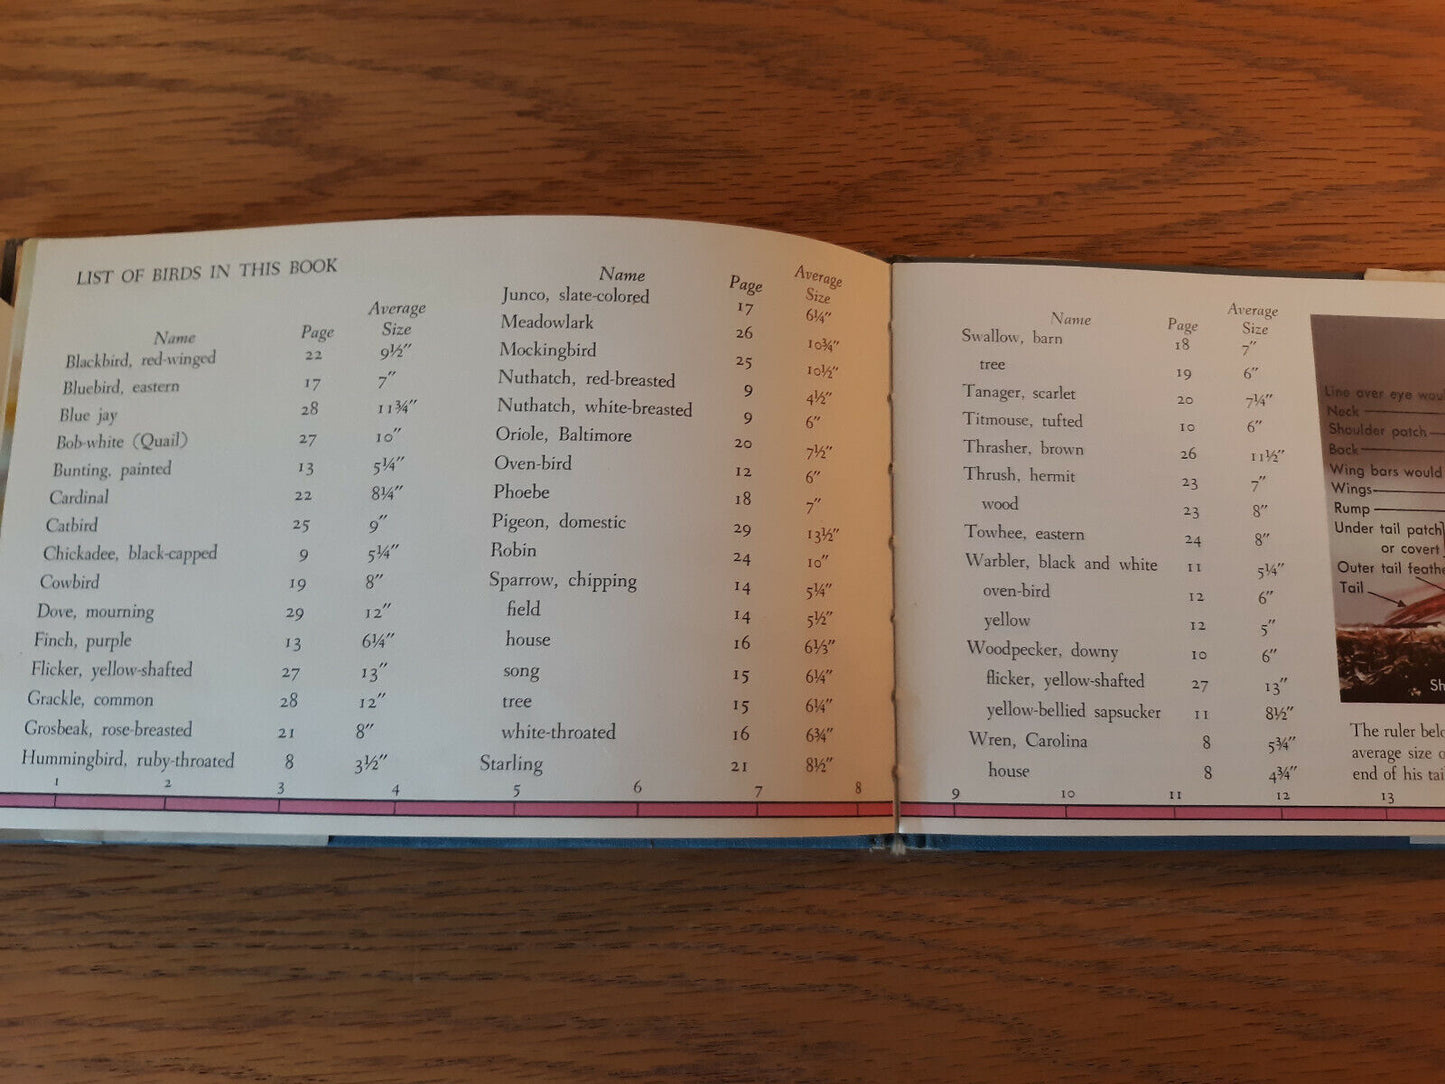 LIST OF BIRDS IN THIS BOOK
Name Page Average Size
Blackbird, red-winged 22 9½″
Bluebird, eastern 17 7″
Blue jay 28 11¾″
Bob-white (Quail) 27 10″
Bunting, painted 13 5¼″
Cardinal 22 8¼″
Catbird 25 9″
Chickadee, black-capped 9 5¼″
Cowbird 19 8″
Dove, mourning 29 12″
Finch, purple 13 6¼″
Flicker, yellow-shafted 27 13″
Grackle, common 28 12″
Grosbeak, rose-breasted 21 8″
Hummingbird, ruby-throated 8 3½″
Name Page Average Size
Junco, slate-colored 17 6¼″
Meadowlark 26 10¾″
Mockingbird 25 10½″
Nuthatch, red-breasted 9 4½″
Nuthatch, white-breasted 9 6″
Oriole, Baltimore 20 7½″
Oven-bird 12 6″
Phoebe 18 7″
Pigeon, domestic 29 13½″
Robin 24 10″
Sparrow, chipping 14 5¼″
field 14 5½″
house 16 6⅓″
song 15 6¼″
tree 15 6¼″
white-throated 16 6¾″
Starling 21 8½″
1 2 3 4 5 6 7 8
Name Page Average Size
Swallow, barn 18 7″
tree 19 6″
Tanager, scarlet 20 7¼″
Titmouse, tufted 10 6″
Thrasher, brown 26 11½″
Thrush, hermit 23 7″
wood 23 8″
Towhee, eastern 24 8″
Warbler, black and white 11 5¼″
oven-bird 12 6″
yellow 12 5″
Woodpecker, downy 10 6″
flicker, yellow-shafted 27 13″
yellow-bellied sapsucker 11 8½″
Wren, Carolina 8 5¾″
house 8 4¾″
9 10 11 12 13
Line over eye wou
Neck
Shoulder patch
Back
Wing bars would
Wings
Rump
Under tail patch
or covert
Outer tail feathe
Tail
Sh
The ruler belo
average size o
end of his tai